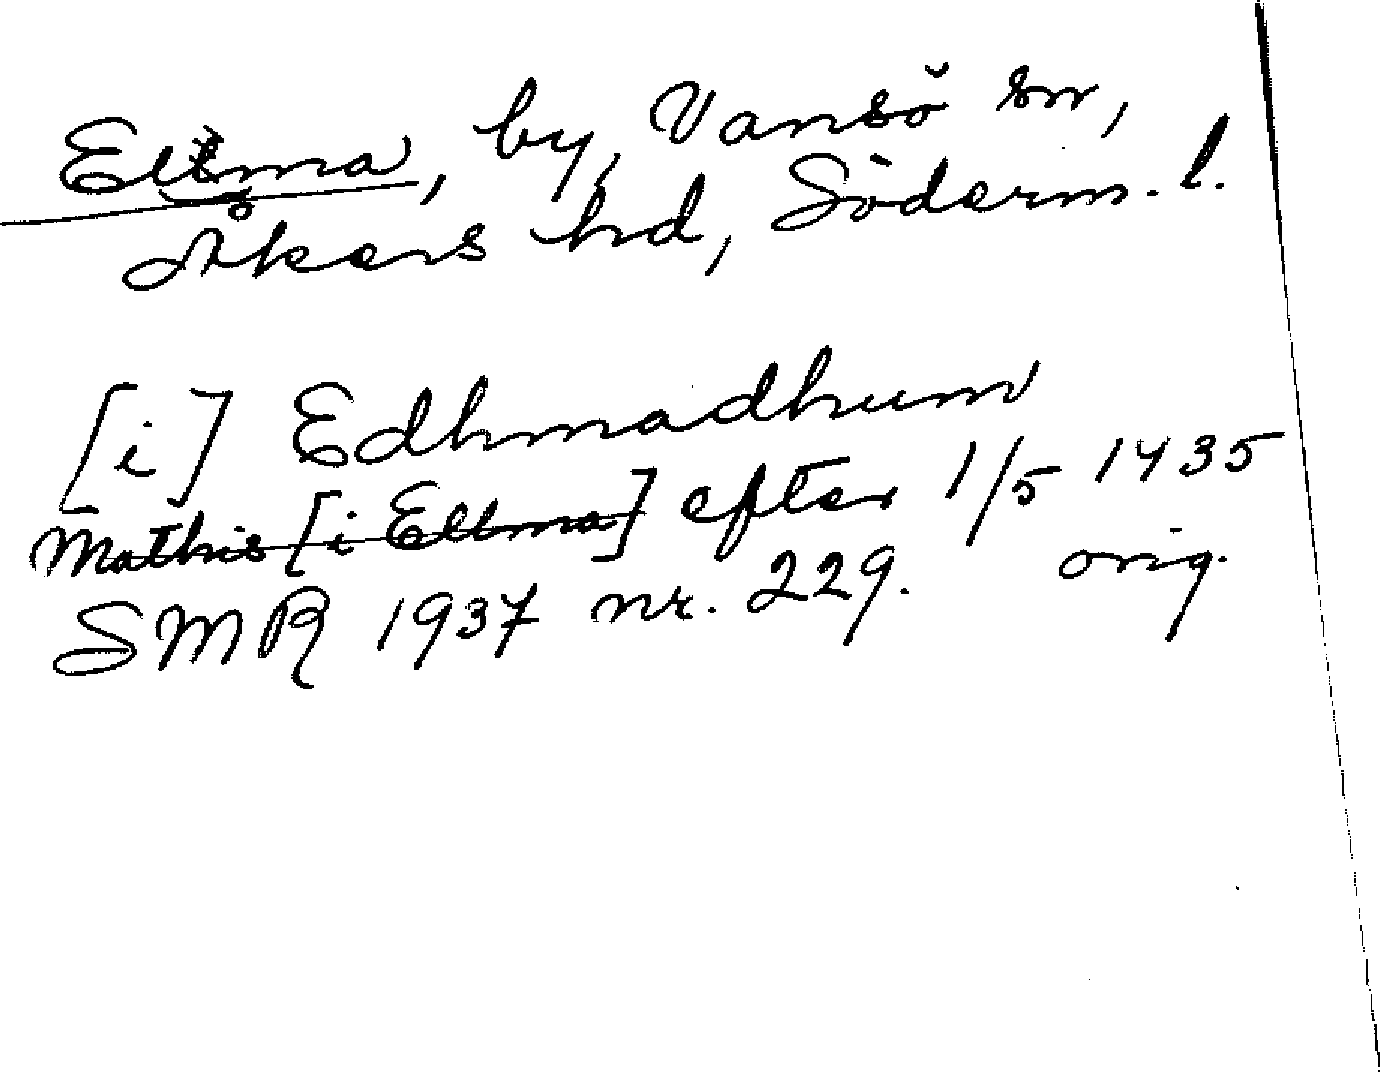 Eltma, by, Vansö sn,
Åkers hd, Söderm. l.
[i] Edhmadhum
Mathis [i Eltma] efter 1/5 1435
SMR 1937 nr. 229. orig.